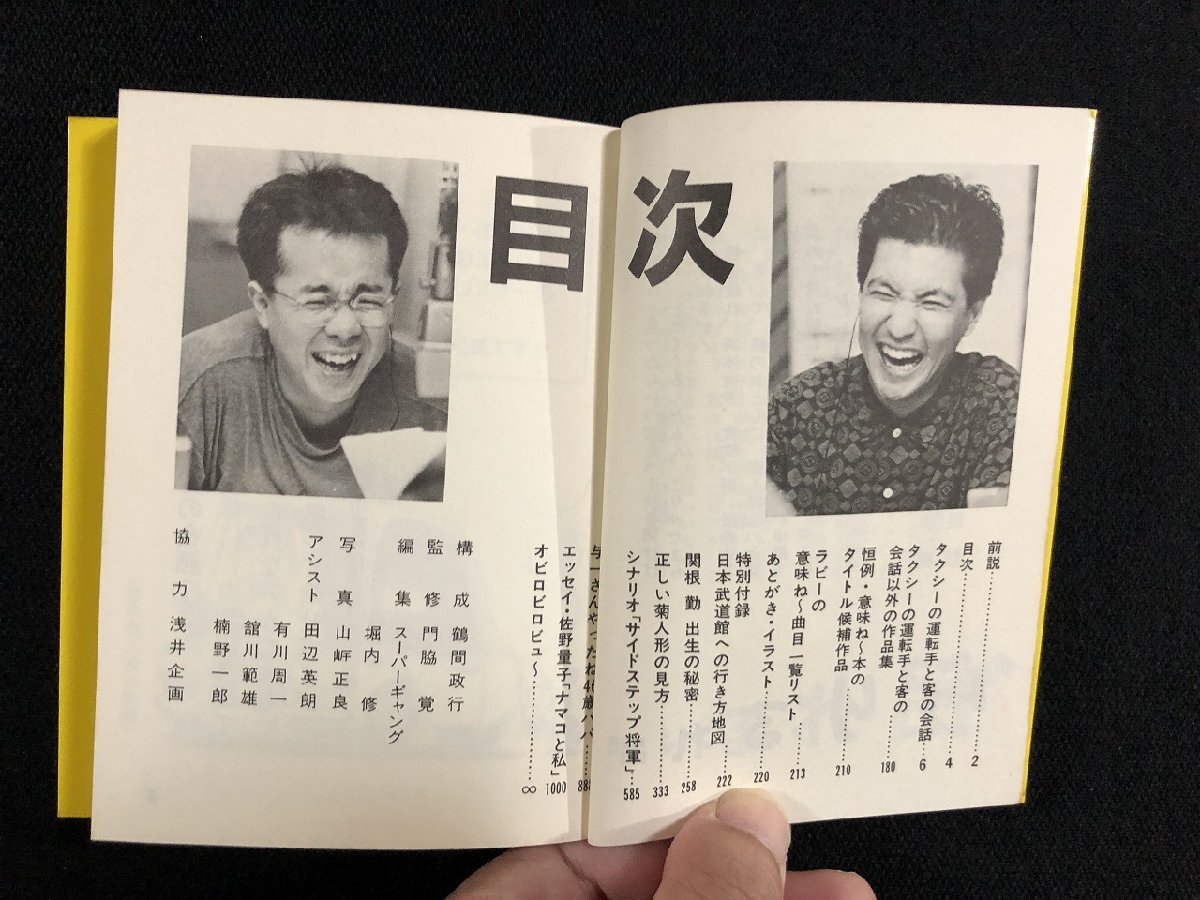 目次
前説……………2
目次……………4
タクシーの運転手と客の会話……6
タクシーの運転手と客の
会話以外の作品集……180
恒例・意味ね〜本の
タイトル候補作品……210
ラビーの
意味ね〜曲目一覧リスト……213
あとがき・イラスト……220
特別付録
日本武道館への行き方地図……222
関根 勤 出生の秘密……258
正しい菊人形の見方……333
シナリオ「サイドステップ将軍」…585
与一さんやったね
エッセイ・佐野量子「ナマコと私」1000
オビロビロビュ〜……∞
構成 鶴間政行
監修 門脇 覚
編集 スーパーギャング
堀内 修
写真 山㟁正良
アシスト 田辺英朗
有川周一
舘川範雄
楠野一郎
協力 浅井企画